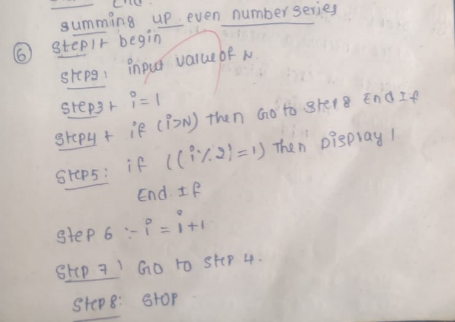 End
summing up even number series
⑥ Step1: begin
Step2: input value of N
Step3: i=1
Step4: if (i>N) then Go to Step 8 End If
Step5: if ((i%2)!=1) Then Display i
End If
Step 6 :- i = i+1
Step 7: Go to Step 4.
Step 8: Stop